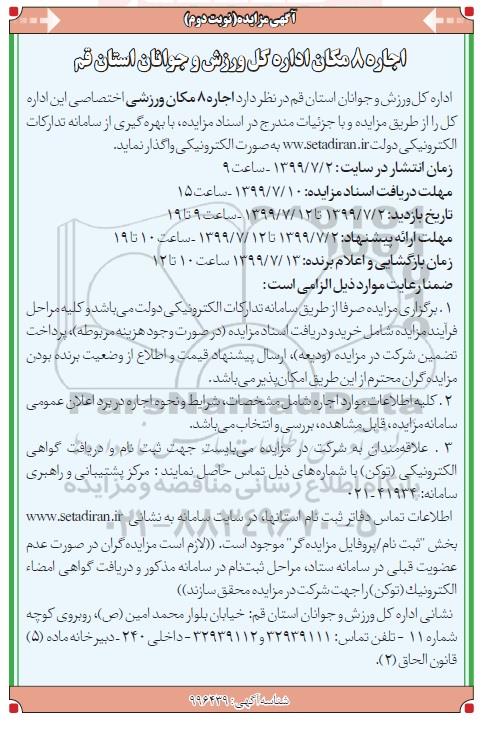 آگهی مزایده(نوبت دوم)
اجاره ۸ مکان اداره کل ورزش و جوانان استان قم
اداره کل ورزش و جوانان استان قم در نظر دارد اجاره ۸ مکان ورزشی اختصاصی این اداره
کل را از طریق مزایده و با جزئیات مندرج در اسناد مزایده، با بهره گیری از سامانه تدارکات
الکترونیکی دولت ww.setadiran.ir به صورت الکترونیکی واگذار نماید.
زمان انتشار در سایت: ۱۳۹۹/۷/۲ - ساعت ۹
مهلت دریافت اسناد مزایده: ۱۳۹۹/۷/۱۰ - ساعت ۱۵
تاریخ بازدید: ۱۳۹۹/۷/۲ تا ۱۳۹۹/۷/۱۲ - ساعت ۹ تا ۱۹
مهلت ارائه پیشنهاد: ۱۳۹۹/۷/۲ تا ۱۳۹۹/۷/۱۲ - ساعت ۱۰ تا ۱۹
زمان بازگشایی و اعلام برنده: ۱۳۹۹/۷/۱۳ ساعت ۱۰ تا ۱۲
ضمنا رعایت موارد ذیل الزامی است:
۱ . برگزاری مزایده صرفا از طریق سامانه تدارکات الکترونیکی دولت می باشد و کلیه مراحل
فرآیند مزایده شامل خرید و دریافت اسناد مزایده (در صورت وجود هزینه مربوطه)، پرداخت
تضمین شرکت در مزایده (ودیعه)، ارسال پیشنهاد قیمت و اطلاع از وضعیت برنده بودن
مزایده گران محترم از این طریق امکان پذیر می باشد.
۲ . کلیه اطلاعات موارد اجاره شامل مشخصات، شرایط و نحوه اجاره در برد اعلان عمومی
سامانه مزایده، قابل مشاهده، بررسی و انتخاب می باشد.
۳ . علاقه مندان به شرکت در مزایده می بایست جهت ثبت نام و دریافت گواهی
الکترونیکی (توکن) با شماره های ذیل تماس حاصل نمایند : مرکز پشتیبانی و راهبری
سامانه: ۴۱۹۳۴-۰۲۱
اطلاعات تماس دفاتر ثبت نام استانها، در سایت سامانه به نشانی www.setadiran.ir
بخش "ثبت نام/پروفایل مزایده گر" موجود است. ((لازم است مزایده گران در صورت عدم
عضویت قبلی در سامانه ستاد، مراحل ثبت نام در سامانه مذکور و دریافت گواهی امضاء
الکترونیك (توکن) را جهت شرکت در مزایده محقق سازند))
نشانی اداره کل ورزش و جوانان استان قم: خیابان بلوار محمد امین (ص)، روبروی کوچه
شماره ۱۱ - تلفن تماس: ۳۲۹۳۹۱۱۱ و ۳۲۹۳۹۱۱۲ - داخلی ۲۴۰ - دبیرخانه ماده (۵)
قانون الحاق (۲).
شناسه آگهی: ۹۹۶۴۳۹